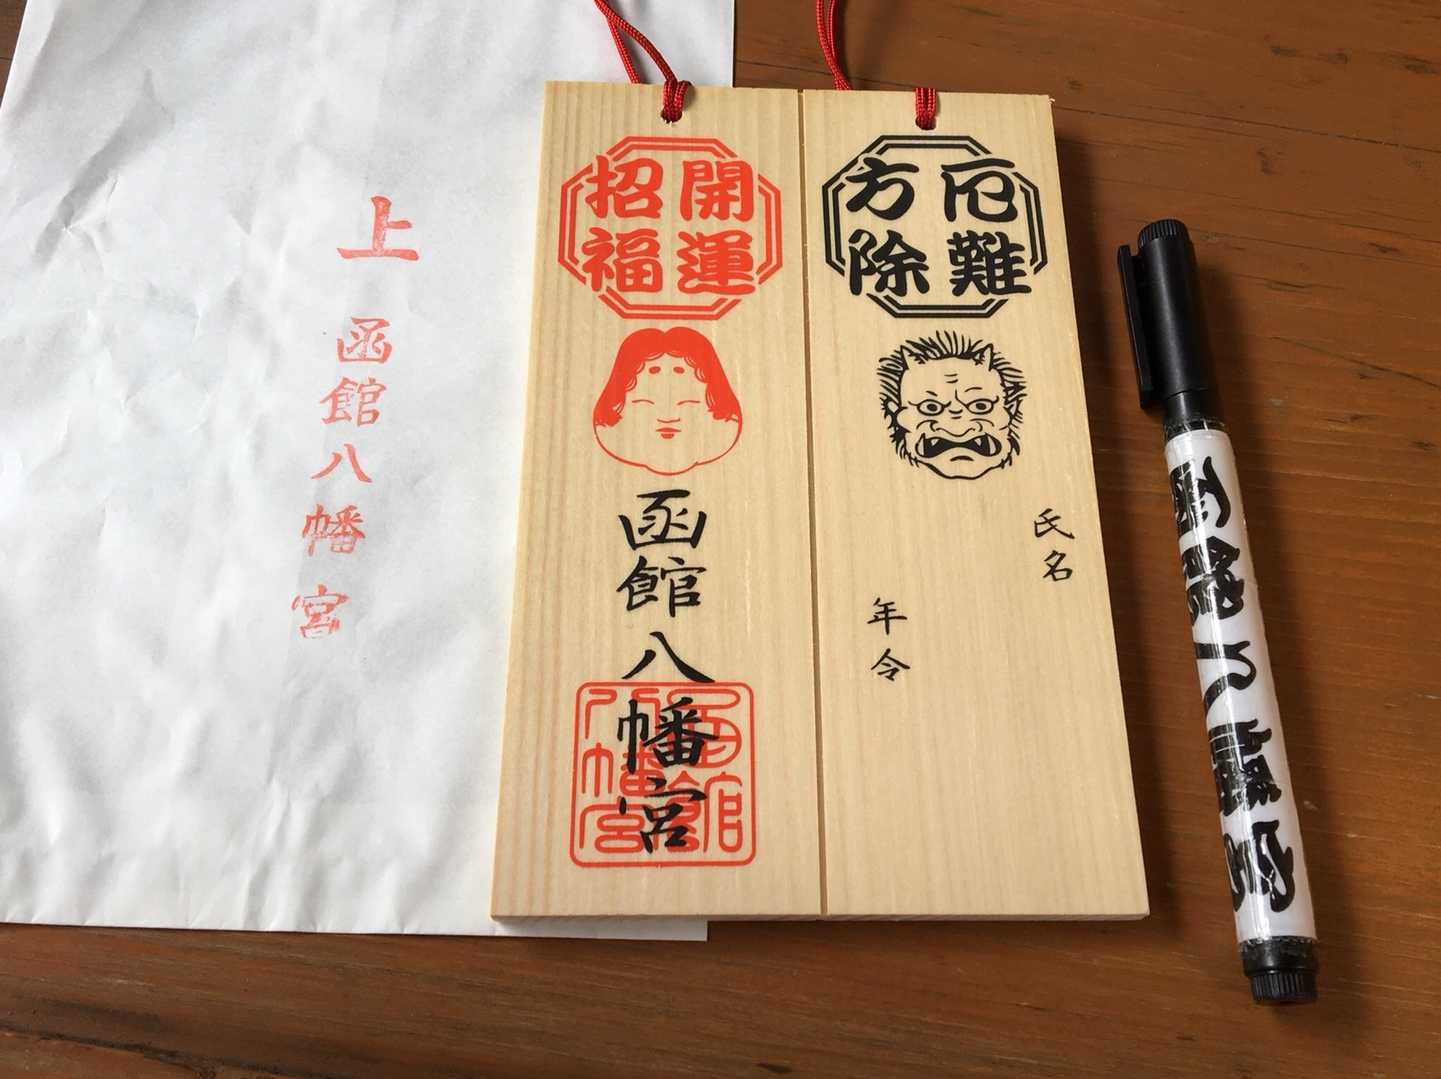 上 函館八幡宮
開運
招福
函館八幡宮
函館
八幡宮
厄難
方除
氏名
年令
函館八幡宮